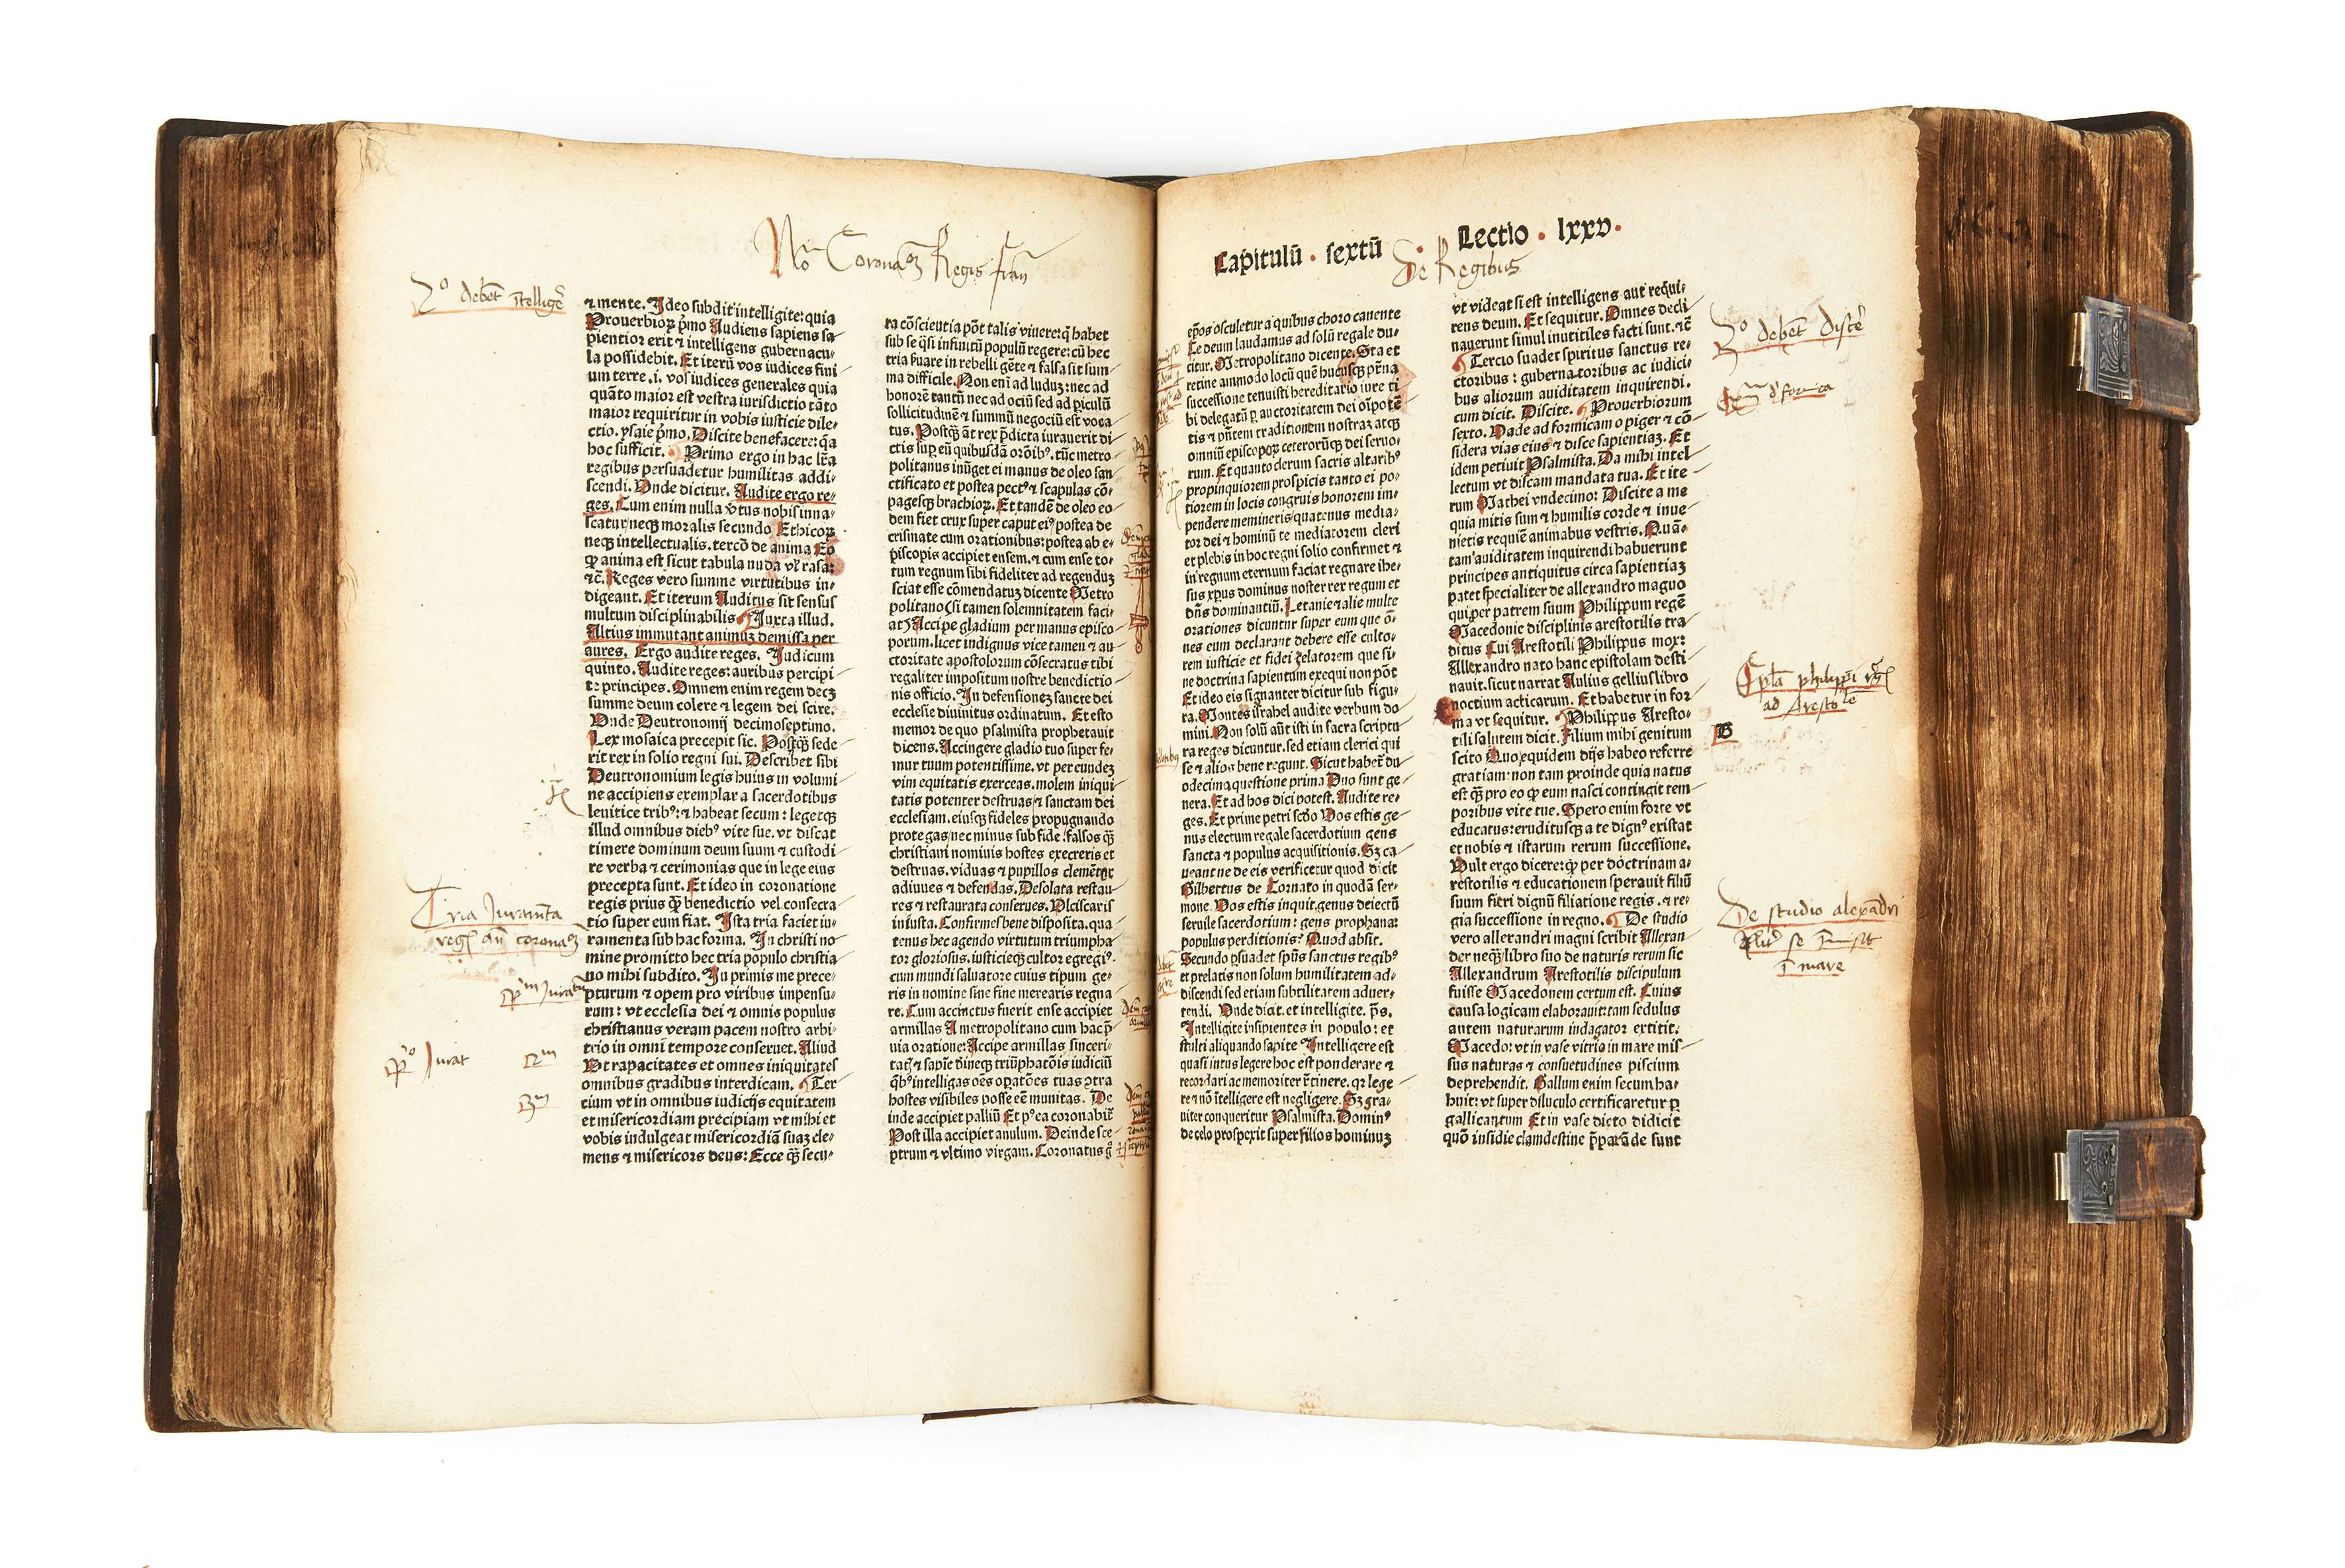 Coronaꝯ Regis fran
2º debet ītelligē
⁊ mente. Ideo subdit intelligite: quia
Prouerbioꝝ pmo Audiens sapiens sa-
pientior erit ⁊ intelligens gubernacu-
la possidebit. Et iterū vos iudices fini-
um terre .i. vos iudices generales quia
quāto maior est vestra iurisdictio tāto
maior requiritur in vobis iusticie dile-
ctio. ysaie pmo. Discite benefacere: q̄a
hoc sufficit. Primo ergo in hac lr̄a
regibus persuadetur humilitas addi-
scendi. Vnde dicitur. Audite ergo re-
ges. Cum enim nulla v̄tus nobis inna-
scatur neqꝫ moralis secundo Ethicoꝝ
neqꝫ intellectualis. tercō de anima Eo
ꝙ anima est sicut tabula nuda vl̄ rasa:
⁊c̄. Reges vero summe virtutibus in-
digeant. Et iterum Auditus sit sensus
multum disciplinabilis Juxta illud.
Altius immutant animuꝫ demissa per
aures. Ergo audite reges. Judicum
quinto. Audite reges: auribus percipi-
te principes. Omnem enim regem decꝫ
summe deum colere ⁊ legem dei scire.
Vnde Deutronomij decimoseptimo.
Lex mosaica precepit sic. Postqꝫ sede-
rit rex in solio regni sui. Describet sibi
Deutronomium legis huius in volumi
ne accipiens exemplar a sacerdotibus
leuitice tribꝰ: ⁊ habeat secum: legetqꝫ
illud omnibus diebꝰ vite sue. vt discat
timere dominum deum suum ⁊ custodi
re verba ⁊ cerimonias que in lege eius
precepta sunt. Et ideo in coronatione
regis prius ꝙ̄ benedictio vel consecra-
tio super eum fiat. Ista tria faciet iu-
ramenta sub hac forma. In christi no-
mine promitto hec tria populo christia-
no mihi subdito. In primis me prece-
pturum ⁊ opem pro viribus impensu-
rum: vt ecclesia dei ⁊ omnis populus
christianus veram pacem nostro arbi-
trio in omni tempore conseruet. Aliud
Vt rapacitates et omnes iniquitates
omnibus gradibus interdicam. Ter-
cium vt in omnibus iudicijs equitatem
et misericordiam precipiam vt mihi et
vobis indulgeat misericordiā suaꝫ cle-
mens ⁊ misericors deus: Ecce qꝫ secu-
Tria Juramēta
regꝭ an̄ coronaꝯ
pm Juratū
pº Jurat
2m
3m
ra cōscientia pōt talis viuere: q̄ habet
sub se q̄si infinitū populū regere: cū hec
tria ẜuare in rebelli gēte ⁊ falsa sit sum-
ma difficile. Non eni ad luduꝫ: nec ad
honorē tantū nec ad ociū sed ad ꝑiculū
sollicitudinē ⁊ summū negociū est voca-
tus. Postqꝫ āt rex p̄dicta iurauerit di-
ctis suꝑ eū quibusdā orōibꝰ. tūc metro-
politanus inūget ei manus de oleo san-
ctificato et postea pectꝰ ⁊ scapulas cō-
pagesqꝫ brachioꝝ. Et tandē de oleo eo-
dem fiet crux super caput eiꝰ postea de
crismate cum orationibus: postea ab e-
piscopis accipiet ensem. ⁊ cum ense to-
tum regnum sibi fideliter ad regenduꝫ
sciat esse cōmendatuꝫ dicente Metro-
politano (si tamen solemnitatem faci-
at) Accipe gladium per manus episco-
porum. licet indignus vice tamen ⁊ au-
ctoritate apostolorum cōsecratus tibi
regaliter impositum nostre benedictio-
nis officio. In defensioneꝫ sancte dei
ecclesie diuinitus ordinatum. Et esto
memor de quo psalmista prophetauit
dicens. Accingere gladio tuo super fe-
mur tuum potentissime. vt per eundeꝫ
vim equitatis exerceas. molem iniqui-
tatis potenter destruas ⁊ sanctam dei
ecclesiam. eiusqꝫ fideles propugnando
protegas nec minus sub fide falsos qꝫ
christiani nominis hostes execreris et
destruas. viduas ⁊ pupillos clemēter
adiuues ⁊ defendas. Desolata restau-
res ⁊ restaurata conserues. Vlciscaris
iniusta. Confirmes bene disposita. qua
tenus hec agendo virtutum triumpha-
tor gloriosus. iusticieqꝫ cultor egregiꝰ.
cum mundi saluatore cuius tipum ge-
ris in nomine sine fine merearis regna-
re. Cum accinctus fuerit ense accipiet
armillas A metropolitano cum hac p̄-
uia oratione: Accipe armillas sinceri-
hostes visibiles posse eē munitas. De
inde accipiet palliū Et pꝰea coronabit̄
Post illa accipiet anulum. Deinde sce-
ptrum ⁊ vltimo virgam. Coronatus g̊
Capitulū . sextū . Lectio . lxxv.
De Regibus
ep̄os osculetur a quibus choro canente
Te deum laudamus ad soliū regale du-
citur. Metropolitano dicente. Sta et
retine ammodo locū quē hucusqꝫ p̄na
successione tenuisti hereditario iure ti
bi delegatū ꝑ auctoritatem dei oipotē
tis ⁊ p̄ntem traditionem nostraꝫ atqꝫ
omniū episcopoꝝ ceterorūqꝫ dei seruo-
rum. Et quanto clerum sacris altaribꝰ
propinquiorem prospicis tanto ei po-
tiorem in locis congruis honorem im-
pendere memineris quatenus media-
tor dei ⁊ hominū te mediatorem cleri
et plebis in hoc regni solio confirmet ⁊
in regnum eternum faciat regnare ihe-
sus xp̄us dominus noster rex regum et
dn̄s dominantiū. Letanie ⁊ alie multe
orationes dicuntur super eum que ō-
nes eum declarant debere esse culto-
rem iusticie et fidei zelatorem que si-
ne doctrina sapientum exequi non pōt
Et ideo eis signanter dicitur sub figu-
ra. Montes israhel audite verbum do-
mini. Non solū aūt isti in sacra scriptu
ra reges dicuntur. sed etiam clerici qui
se ⁊ alios bene regunt. Sicut habet̄ du-
odecima questione prima Duo sunt ge-
nera. Et ad hos dici potest. Audite re-
ges. Et prime petri scdo Vos estis ge-
nus electum regale sacerdotium gens
sancta ⁊ populus acquisitionis. Sꝫ ca-
ueant ne de eis verificetur quod dicit
Gilbertus de Tornato in quodā ser-
mone. Vos estis inquit. genus deiectū
seruile sacerdotium: gens prophana:
populus perditionis? Quod absit.
Secundo ꝑsuadet spūs sanctus regibꝰ
et prelatis non solum humilitatem ad-
discendi sed etiam subtilitatem aduer-
tendi. Vnde dicit. et intelligite. p̄s.
Intelligite insipientes in populo: et
stulti aliquando sapite Intelligere est
quasi intus legere hoc est ponderare ⁊
recordari ac memoriter r̄tinere. qꝛ lege-
re ⁊ nō ītelligere est negligere. Sꝫ gra-
uiter conqueritur Psalmista. Dominꝰ
de celo prospexit super filios hominuꝫ
vt videat si est intelligens aut requi-
rens deum. Et sequitur. Omnes decli
nauerunt simul inutitiles facti sunt. ⁊c̄
Tercio suadet spiritus sanctus re-
ctoribus: gubernatoribus ac iudici-
bus aliorum auiditatem inquirendi.
cum dicit. Discite. Prouerbiorum
sexto. Vade ad formicam o piger ⁊ cō-
sidera vias eius ⁊ disce sapientiaꝫ. Et
idem petiuit Psalmista. Da mihi intel-
lectum vt discam mandata tua. Et ite-
rum Mathei vndecimo: Discite a me
quia mitis sum ⁊ humilis corde ⁊ inue-
nietis requiē animabus vestris. Quā-
tam auiditatem inquirendi habuerunt
principes antiquitus circa sapientiaꝫ
patet specialiter de allexandro maguo
qui per patrem suum Philippum regē
Macedonie disciplinis arestotilis tra-
ditus Cui Arestotili Philippus mox:
Allexandro nato hanc epistolam desti-
nauit. sicut narrat Aulius gellius libro
noctium acticarum. Et habetur in for-
ma vt sequitur. Philippus Aresto-
tili salutem dicit. Filium mihi genitum
scito Quo equidem dijs habeo referre
gratiam: non tam proinde quia natus
est qꝫ pro eo ꝙ eum nasci contingit tem-
poribus vite tue. Spero enim forte vt
educatus: eruditusqꝫ a te dignꝰ existat
et nobis ⁊ istarum rerum successione.
Vult ergo dicere: ꝙ per doctrinam a-
restotilis ⁊ educationem sperauit filiū
suum fieri dignū filiatione regis. ⁊ re-
gia successione in regno. De studio
vero allexandri magni scribit Allexan-
der neqꝫ libro suo de naturis rerum sic
Allexandrum Arestotilis discipulum
fuisse Macedonem certum est. Cuius
causa logicam elaborauit: tam sedulus
autem naturarum indagator extitit.
Macedo: vt in vase vitrio in mare mis-
sus naturas ⁊ consuetudines piscium
deprehendit. Gallum enim secum ha-
buit: vt super diluculo certificaretur ꝑ
gallicantum Et in vase dicto didicit
quō insidie clamdestine p̄parāde sunt
3º debet discē
B
Epl̄a philippi rꝭ
ad Arestoᵗˡᵉ
De studio alexādri
se īmisit
ī mare